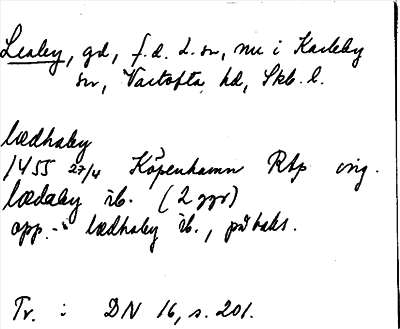 Lealey, gd, f.d. L. sn, nu i Karleby
sn, Vartofta hd, Skb. l.
lædhaby
1455 27/4 Köpenhamn RAp orig.
lædaby ib. (2 ggr)
opp. lædhaby ib., på baks.
Tr. i DN 16, s. 201.